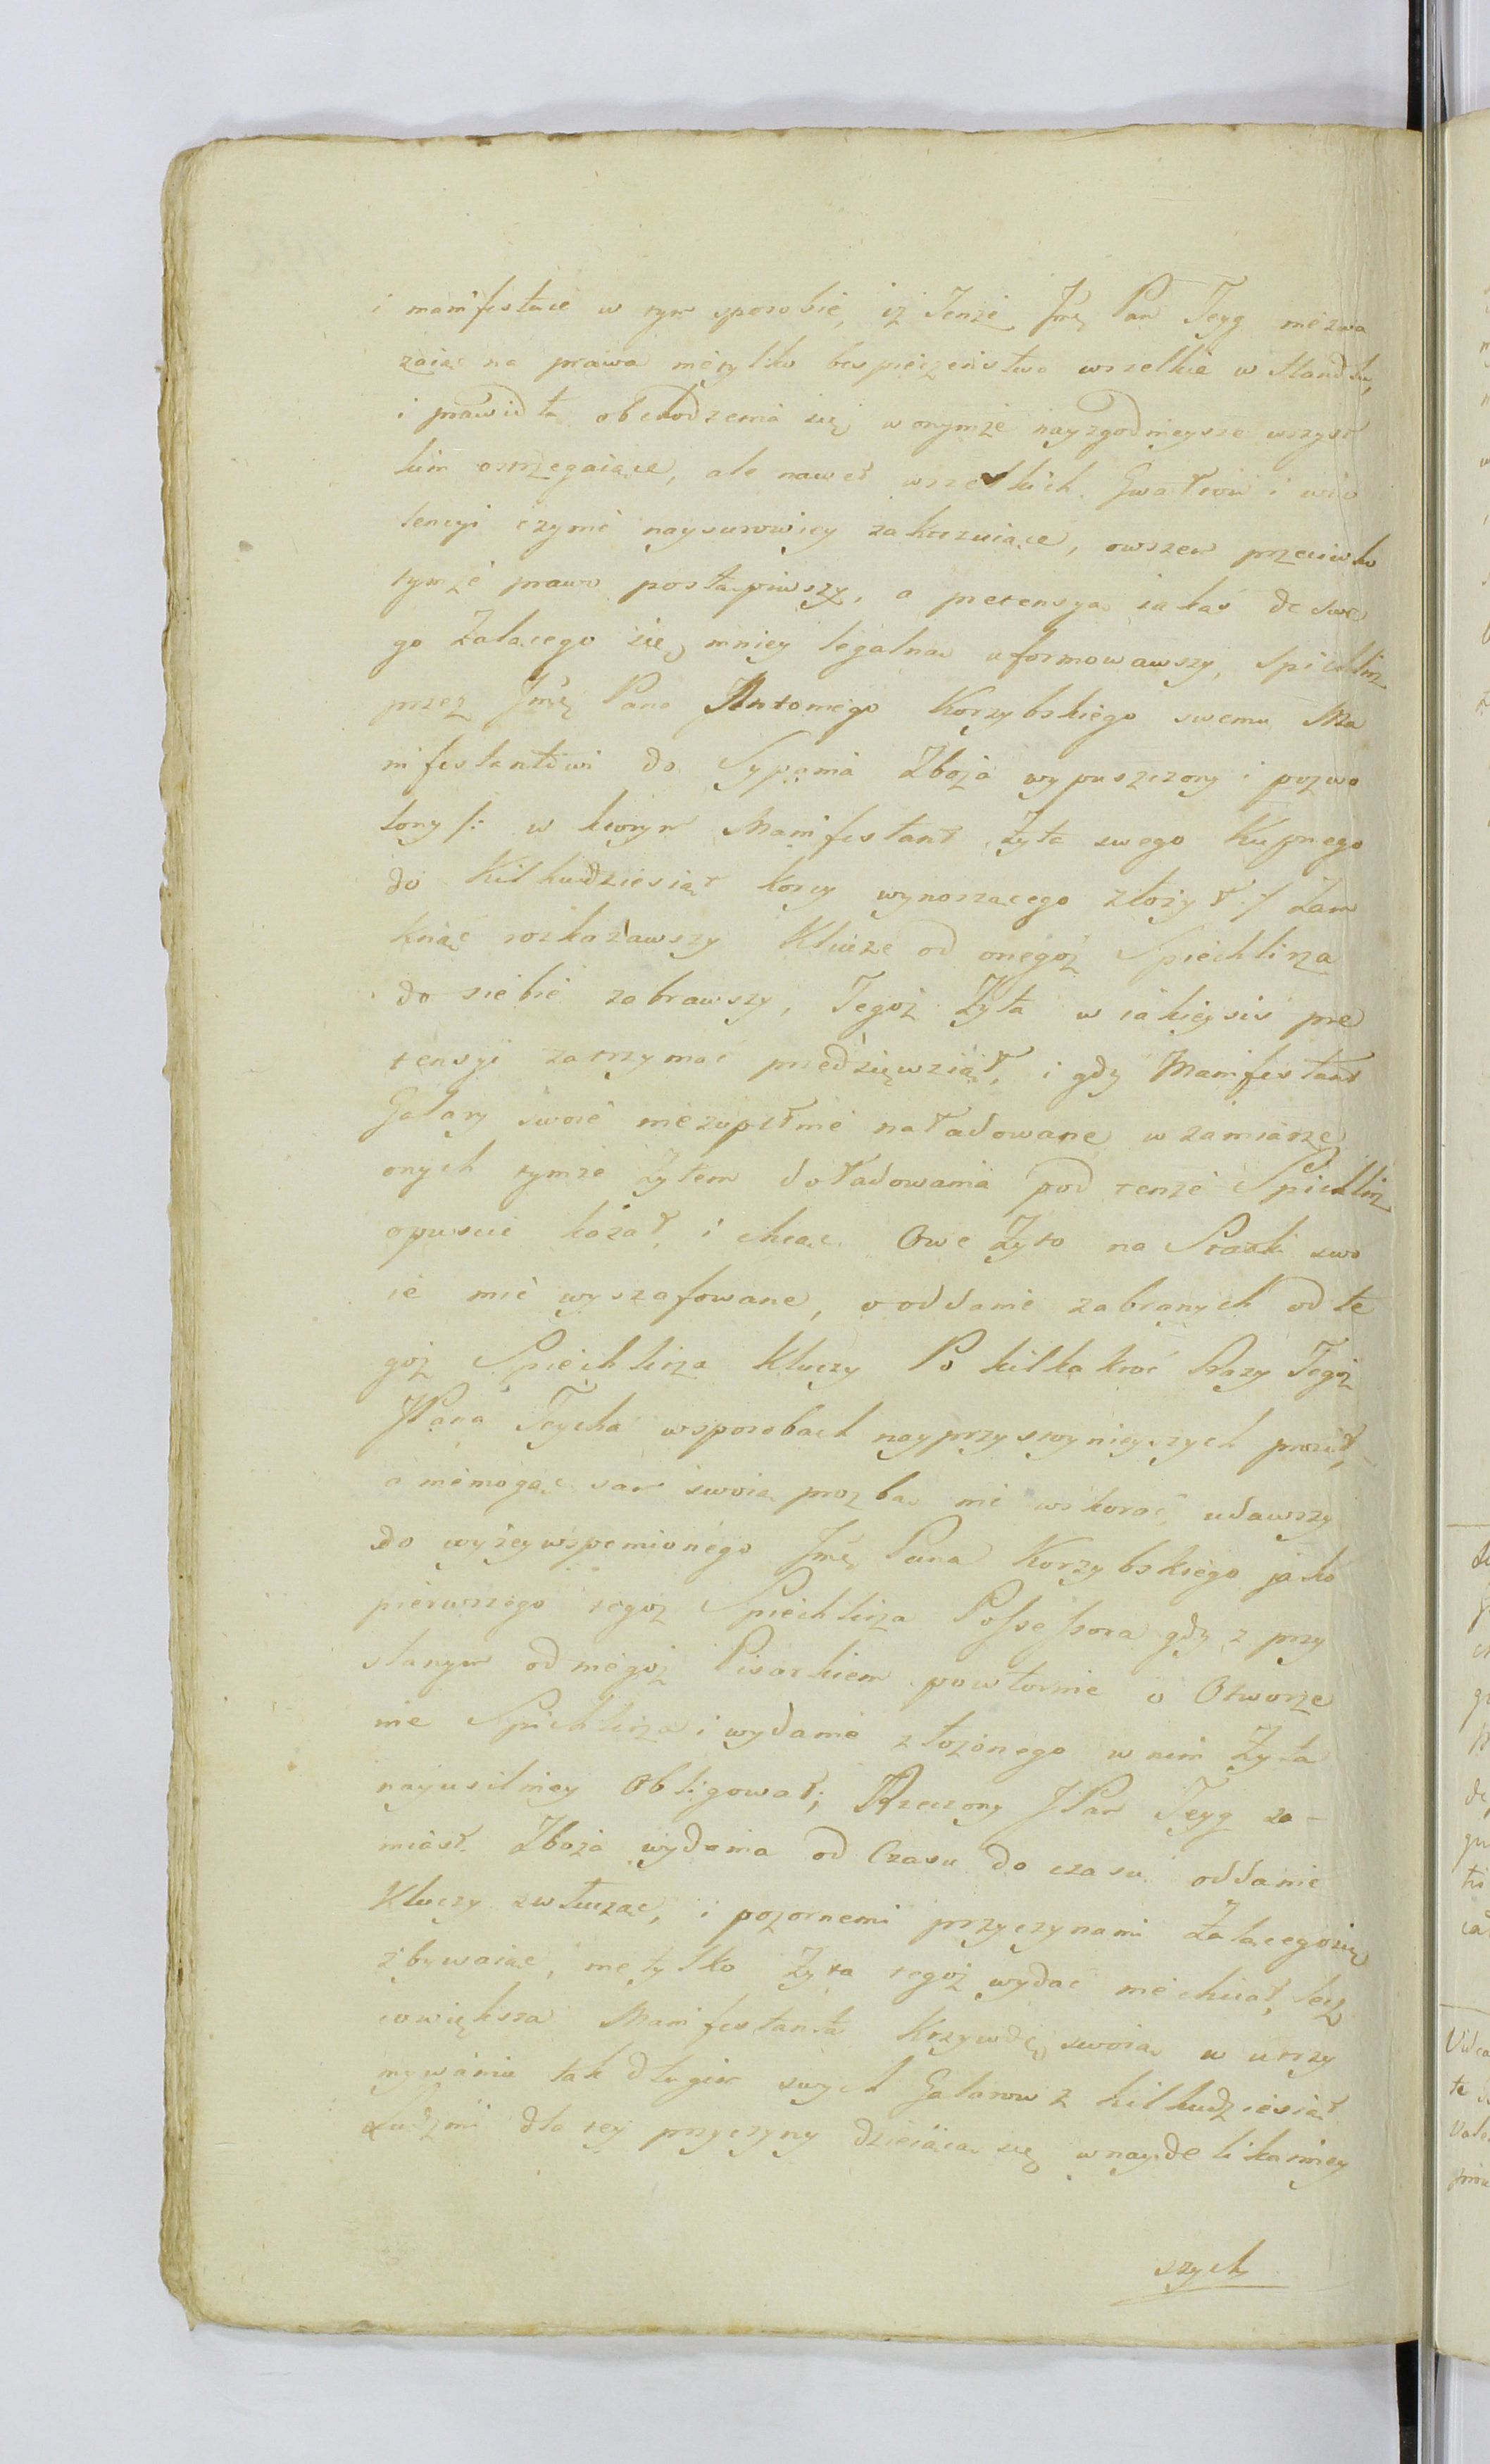 i manifestuie w tym sposobie, iż Tenże Jmć Pan Teyg niezwa
żaiąc na prawa nietylko bespieczeństwo wszelkie w Handlu,
i prawidła obchodzenia się w onymże nayzgodnieysze wszyst
kim ostrzegaiące, ale nawet wszelkich Gwałtow i wio
lencyi czynić naysurowiey zakazuiące, owszem przeciwko
tymże prawo postąpiwszy, a pretensyą iakąś do swe
go Żalącego się mniey legalną uformowawszy, Spichlirz
przez Jmć Pana Antoniego Korzybskiego swemu Ma
nifestantowi do Sypania Zboża wypuszczony i pozwo
lony /: w ktorym Manifestant Żyta swego Kupnego
do Kilkudziesiąt korcy wynoszącego złożył :/ Zam
knąć rozkazawszy Klucze od onegoż Spichlirza
do siebie zabrawszy, Tegoż Żyta w iakieysiś pre
tensyi zatrzymać przedsięwziął, i gdy Manifestant
Galary swoie niezupełnie naładowane w zamiarze
onych tymże żytem doładowania pod tenże Spichlirz
opuscić kazał, i chcąc Owe Żyto na Statki swo
ie mieć wyszafowane, o oddanie zabranych od te
goż Spichlirza Kluczy Po kilkakroć Razy Tegoż
JPana Teycha wsposobach nayprzystoynieyszych prosił,
a niemogąc sam swoią prozbą nic wskorać, udawszy
do wyżeywspomionego Jmć Pana Korzybskiego jako
pierwszego tegoż Spichlirza Possessora gdy z przy
słanym od niegoż Pisarkiem powtornie o Otworze
nie Spichlirza i wydanie złożonego w nim Żyta
nayusilniey Obligował; Rzeczony JPan Teyg za-
miast Zboża wydania od Czasu do czasu oddanie
Kluczy zwłucząc, i pozornemi przyczynami Żalącegosię
zbywaiąc, nietylko Żyta tegoż wydać niechciał, lecz
cowiększa Manifestanta Krzywdę swoią w utrzy
mywaniu tak długim swych Galarow z kilkudziesiąt
Ludzmi dla tey przyczyny dzieiącą się wnaydelikatniey
szych